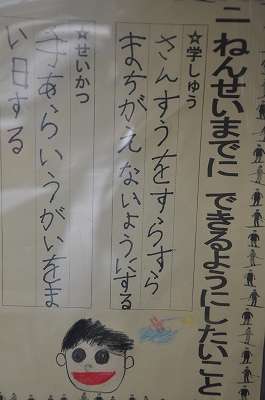 二ねんせいまでに できるようにしたいこと
☆学しゅう
さんすうをすらすら
まちがえないようにする
☆せいかつ
手あらいうがいをま
い日する